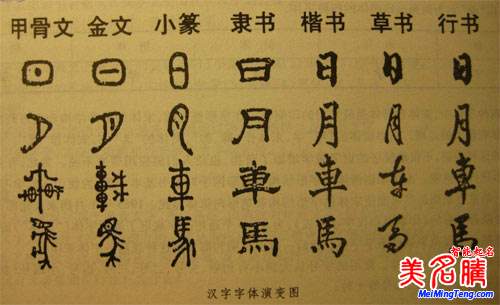 甲骨文 金文 小篆 隶书 楷书 草书 行书
日 日 日 日 日 日 日
月 月 月 月 月 月 月
車 車 車 車 車 车 車
馬 馬 馬 馬 馬 马 馬
汉字字体演变图
智能起名
美名腾
MeiMingTeng.com